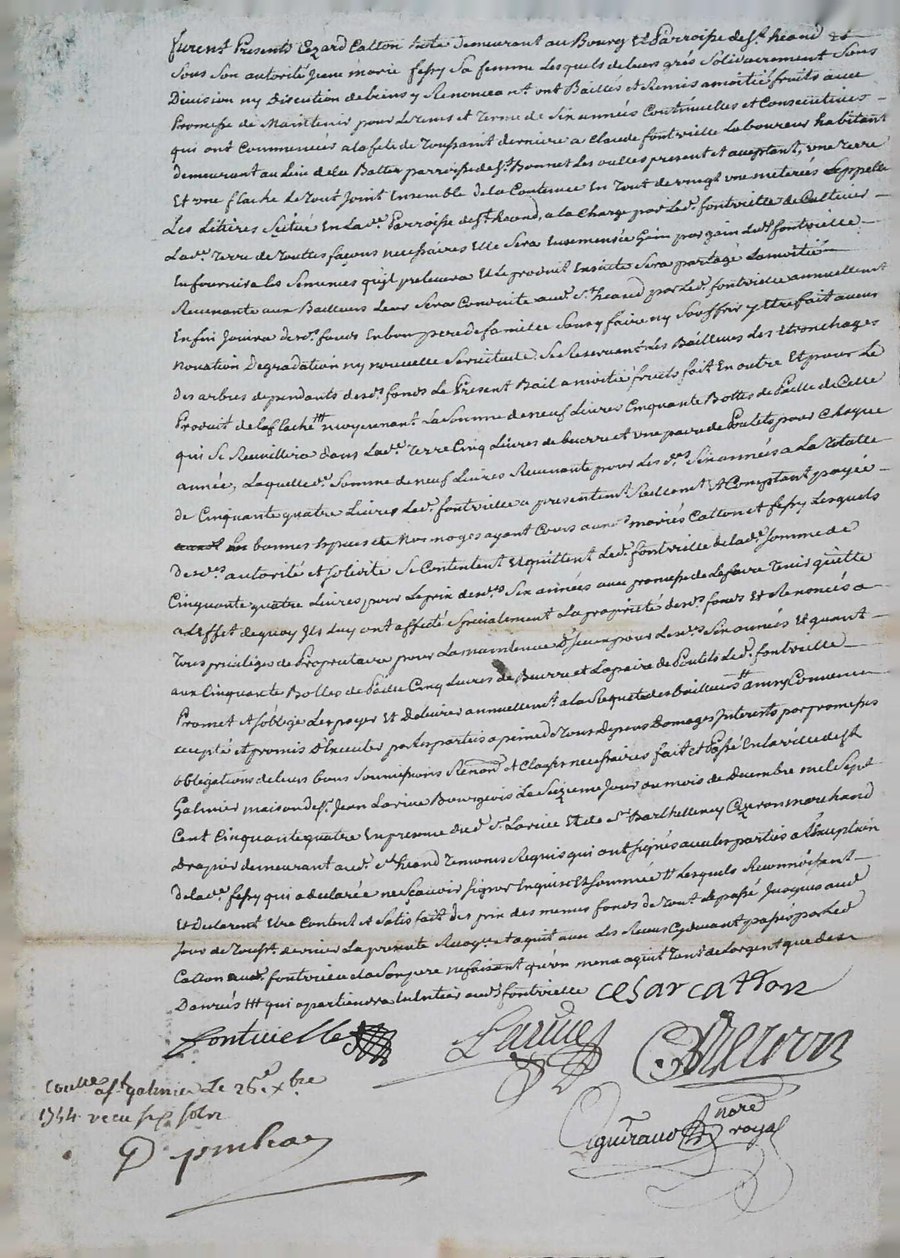 furent Presents Cezard Catton hoste demeurant au Bourg Et Parroisse de St. heand Et
Sous Son autorité Jeane marie fessy Sa femme Lesquels de leurs grés Solidairement Sans
Division ny Discution de biens y Renonceant ont Baillés et Remis a moitié fruits avec
Promesse de Maintenir pour Le tems et Terme de Six années Continuelles et Consecutives
qui ont Commencées a la fete de Toussaint derniere a Claude fontvielle Laboureur habitant
demeurant au Lieu de la Batter parroisse de St. Bonnet Les oulles present et acceptant, une Terre
Et une flache le Tout Joint Ensemble de la Contenue En Tout de vingt une méterés appellée
Les Litières Scitué En La de. Parroisse de St. heand, a la Charge par Led. fontvielle de Cultiver
La de. Terre de Touttes façons necessaires Elle Sera Ensemencée Gain par gain Led. fontvielle
En fournira Les Semences qu'il prelevera Et Le produit Ensuite Sera partagé La moitié
Revenante aux Bailleurs Leur Sera Conduite aud. St. heand par Led. fontvielle annuellement
Enfin Jouira desd. fonds En bon pere de famille Sans y faire ny Souffrir y Etre fait aucune
novation Degradation ny nouvelle Servitude, Se Reservent Les Bailleurs Les Etronchages
Des arbres dependants desd. fonds Le Present Bail a moitié fruits fait En outre Et pour Le
Produit de la flache moyennant La Somme de neuf Livres Cinquante Bottes de Paille de Celle
qui Se Receuillira dans Lade. Terre Cinq Livres de beurre et une paire de Poulets pour Chaque
année, Laquelle de. Somme de neuf Livres Revenante pour Les ds. Six années a La Totalle
de Cinquante quatre Livres Led. fontvielle a presentemt. Reellement Et Comptant payée
En bonnes Especes de Nos monoyes ayant Cours auxd. mariés Catton et fessy Lesquels
De sd. autorité et solidité Se Contentent Et quittent Led. fontvielle de lad. Somme de
Cinquante quatre Livres pour Le prix desd. Six années avec promesse de Le faire Tenir quitte
a L'Effet de quoy Ils Luy ont affecté Specialement La proprietés desd. fonds Et Renoncés a
Tous privilèges de Proprietaire pour La maintenue D'Iceux pour Lesd. Six années Et quant
aux Cinquante Bottes de Paille Cinq Livres de Beurre et La paire de Poulets Led. fontvielle
Promet Et s'oblige Les payer Et Delivrer annuellemt. a la Requete des bailleurs ainsy Convenu
accepté et promis D'Executer par Les parties a peine de Tous Depens Domages Interets par promesses
obligations de leurs biens Soumissions Renon.ons et Clauses necessaires fait et Passé En la ville de St.
Galmier maison de Sr. Jean Larive Bourgeois Le Seizieme Jour du mois de Decembre mil Sept
Cent Cinquante quatre En presence dud. Sr. Larive Et de Sr. Barthellemy Cheron marchand
Drapier demeurant aud. St. heand Temoins Requis qui ont signés avec Les parties a L'Exception
de lade. fessy qui a declarée ne Sçavoir Signer Enquise Et Sommée Lesquels Reconnoissent
Et Declarent Etre Content Et Satisfait des prix des memes fonds de Tout Le passé Jusques aud.
Jour de Touss. dernier La presente Recoy. et aquit avec Les Receus Cydevant passés par Led.
Catton aud. fontvielle ne faisant qu'un meme aquit Tant de L'argent que des
Danrés qui apartiendra En Entier aud. fontvielle cesar catton
fontvielle Larive Cheron
Con.lle a St. galmier Le 26e. Xbre
1754 receu
not.re
royal